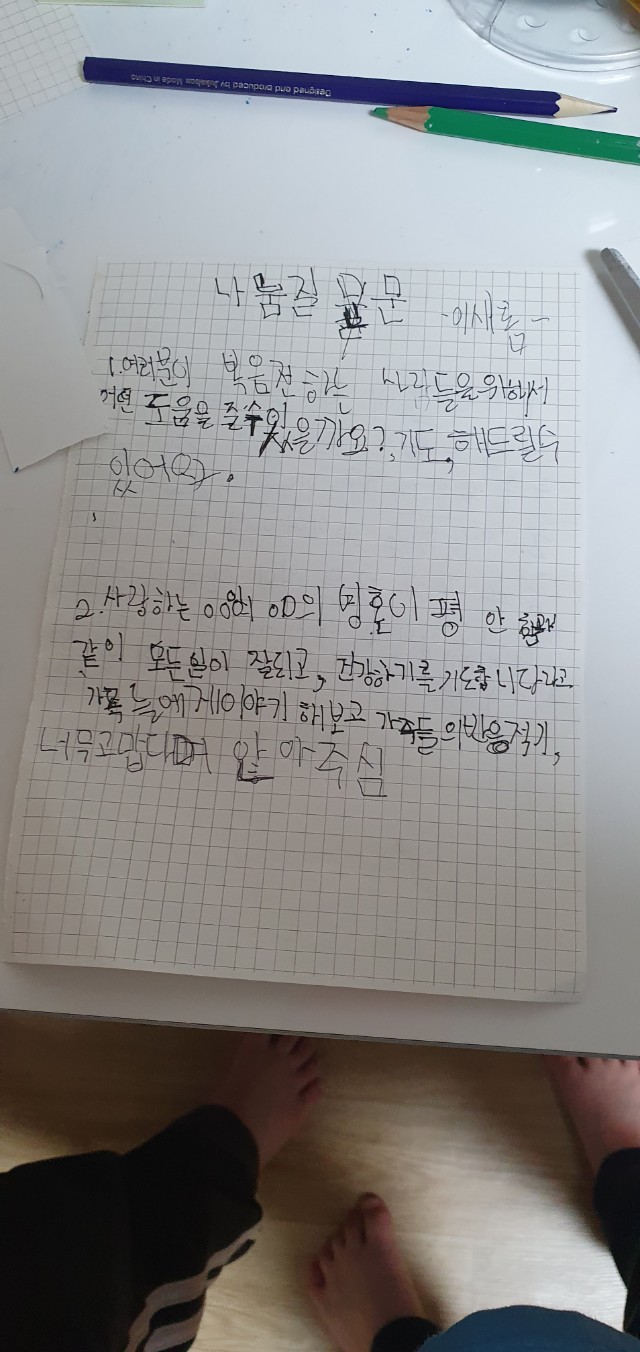 Designed and produced by Jukebox Made in China
나눔질문 -이새롬-
1.여러분이 복음전하는 사람들을위해서
어떤 도움을 줄수있
있을까요?, 기도, 해드릴수
있어요.
2.사랑하는 ooo의 oo의 영혼이 평안
같이 모든일이 잘되고, 건강하기를 기도합니다라고
가족들에게이야기 해보고 가족들의반응적기,
너무고맙다며 안아주심